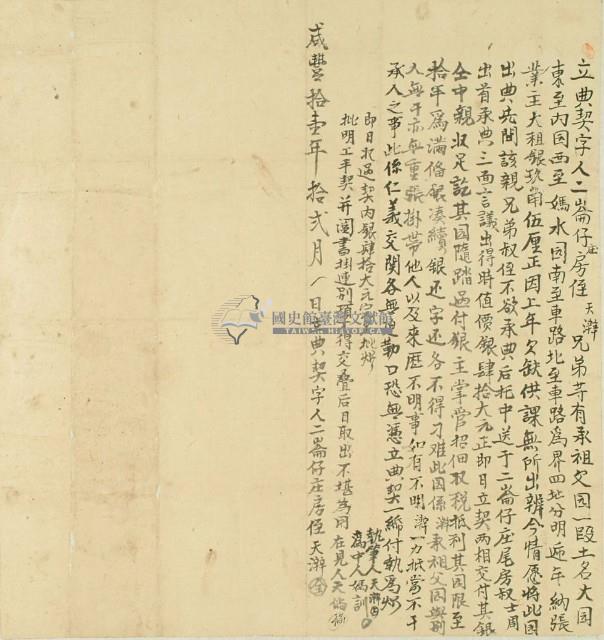 立典契字人二崙仔庄房侄天澣兄弟等有承祖父园一段土名大园
東至內园西至媽水园南至車路北至車路為界四址分明遞年納張
業主大租銀玖角伍厘正因上年欠缺供課無所出辦今情愿將此园
出典先問該親兄弟叔侄不欲承典后托中送于二崙仔庄尾房叔士周
出首承典三面言議出得時值價銀肆拾大元正即日立契兩相交付其銀
仝中親收足訖其园隨踏過付銀主掌管招佃収稅抵利其园限至
拾年為滿俻銀湊續銀还字还各不得刁难此园係澣承祖父园與別
人無干亦無重張掛帶他人以及来歷不明事如有不明澣一力抵當不干
承人之事此係仁義交関各無迫勒口恐無憑立典契一紙付執為炤
即日收過契內銀肆拾大元完足批炤
批明上手契并鬮書掛連別項不得交疊后日取出不堪為用
在見人天
為中人媽訓
執筆人天澣
咸豐拾壹年拾弍月 日立典契字人二崙仔庄房侄天澣
國史館臺灣文獻館
TAIWAN HISTORICA